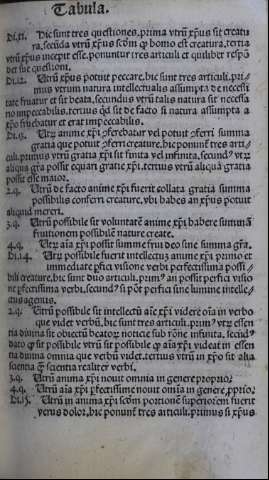 Tabula.
Di.11. Hic sunt tres questiones, prima vtrũ xp̃us sit creatu
ra, secũda vtrũ xp̃us scdm ꝙ homo est creatura, tertia
vtrũ xp̃us incepit esse. ponuntur tres articuli et quilibet respõ
det sui questioni.
Di.12. Utrũ xp̃us potuit peccare, hic sunt tres articuli, pri
mus vtrum natura intellectualis assumpta de necessi
tate fruatur et sit beata, secundus vtrũ talis natura sit necessa
rio impeccabilis, tertius qd̃ sit de facto si natura assumpta a
xp̃o fruebatur et erat impeccabilis.
Di.13. Utrũ anime xp̃i conferebatur vel potuit conferri summa
gratia que potuit conferri creature, hic ponunt̃ tres arti
culi, primus vtrũ gratia xp̃i sit finita vel infinita, secund9 vtrũ
aliqua grã possit equari gratie xp̃i, tertius vtrũ aliqua gratia
possit esse maior.
2.q. Utrũ de facto anime xp̃i fuerit collata gratia summa
possibilis conferri creature, vbi habes an xp̃us potuit
aliquid mereri.
3.q. Utrũ possibile sit voluntatẽ anime xp̃i habere summã
fruitionem possibilẽ nature create.
4.q. Utrũ aĩa xp̃i possit summe frui deo sine summa grã.
Di.14. Utrũ possibile fuerit intellectuȝ anime xp̃i primo et
immediate pfici visione verbi perfectissima possi
bili creature, hic sunt duo articuli, prim9 an possit perfici visio
ne pfectissima verbi, secund9 si põt perfici sine lumine intelle
ctus agentis.
2.q. Utrũ possibile sit intellectũ aĩe xp̃i videre oĩa in verbo
que videt verbũ, hic sunt tres articuli, prim9 vtrũ essen
tia diuina sit obiectũ beatoꝝ noticie sub rõne infinita, secũd9
dato ꝙ sit possibile vtrũ sit possibile ꝙ aĩa xp̃i videat in essen
tia diuina omnia que verbũ videt, tertius vtrũ in xp̃o sit alia
scientia quã scientia realiter verbi.
3.q. Utrũ anima xp̃i nouit omnia in genere proprio.
4.q. Utrũ aĩa xp̃i perfectissime nouit oĩa in genere proprio.
Di.15. Utrũ in anima xp̃i scdm portionẽ superiorem fuerit
verus dolor, hic ponunt̃ tres articuli, primus si xp̃us